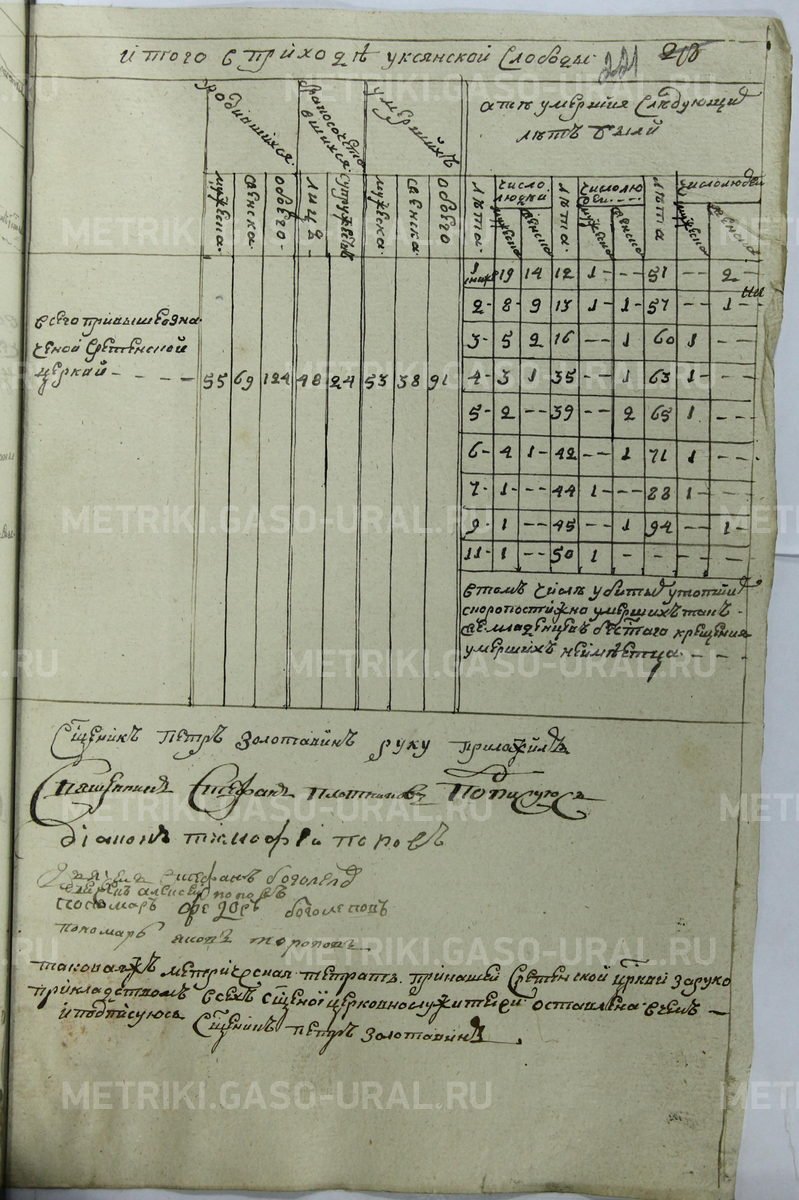 итого в приходѣ уксянской слободы
221
родившихся
бракосочетавшихся
умершихъ
а тѣ умершия следующих
лѣтъ были
мужеска
женска
обоего
лицъ
супружествъ
мужеска
женска
обоего
лѣта
число людей
мужеска
женска
лѣта
число людей
мужеска
женска
лѣта
число людей
мужеска
женска
1 19 14 12 1 - - - 51 - - 2
2 - 8 - 9 13 1 - 1 - 57 - - 1
3 - 5 2 16 - - 1 60 1 - -
всего при вышеозна
ченой сретенской
церкви - - - - 55 69 124 48 24 53 38 91
4 - 3 1 35 - - 1 63 1 - - -
5 - 2 - - 39 - - 2 65 1 - -
6 - 4 1 - 42 - - 1 71 1 - - -
7 - 1 - - - 44 1 - - - 83 1 - - -
9 - 1 - - 45 - - 1 94 - - 1 -
11 - 1 - - 50 1 - - - - -
в томъ числѣ убитых утопших
скоропостижно умершихъ такъ
же младенцевъ без святаго крещения
умершихъ неимѣетца - - -
Сщенникъ петръ золотавинъ руку приложилъ
Священникъ Стефанъ плотниковъ Потписуюсь
діаконъ тимофей поповъ
дьячекъ стефанъ боголепов
дьячекъ алексей поповъ
пономарь федоръ боголеповъ
пономарь яковъ тороповъ
таковаяжъ метрическая тетрать при нашей Сретенской цркви за руко
прикладствомъ всехъ сщенно и церковнослужителей оставлена в чемъ -
и подписуюсь Сщенникъ петръ золотавинъ
METRIKI.GASO-URAL.RU